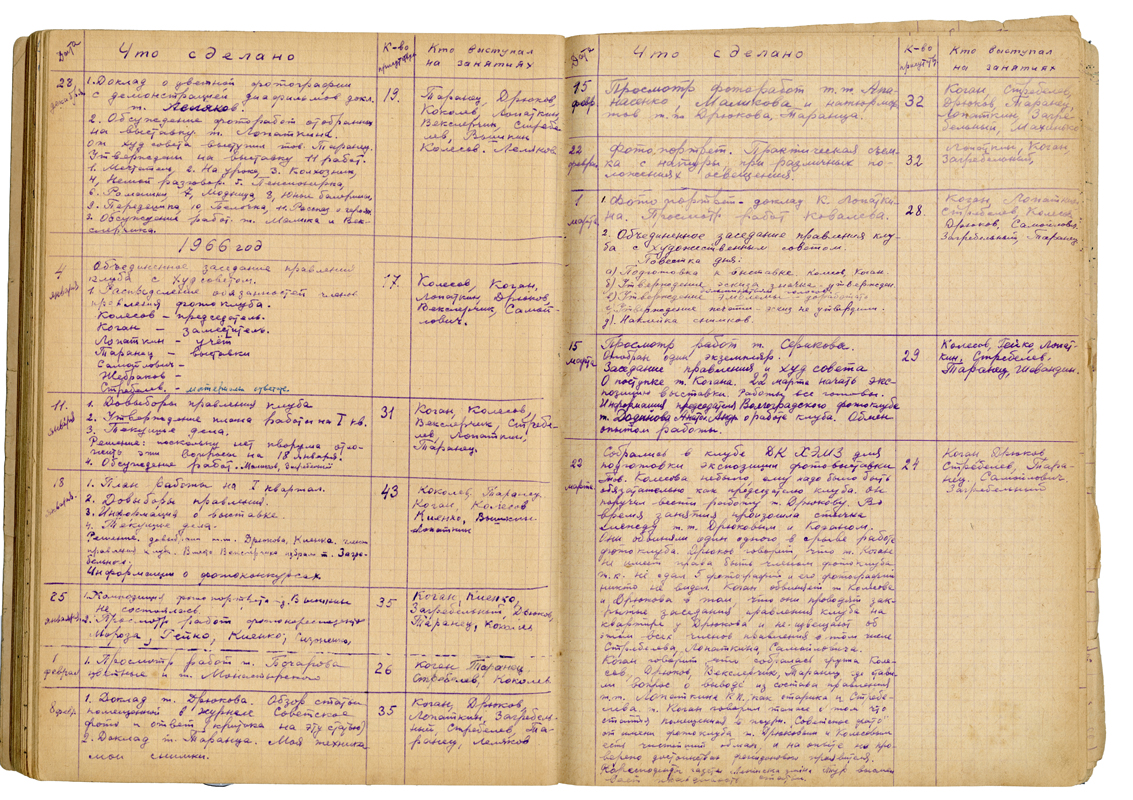 Дата
Что сделано
К-во присутств.
Кто выступал
на занятиях
28
декабря
1. Доклад о цветной фотографии
с демонстрацией диафильмов докл.
т. Леляков.
2. Обсуждение фоторабот отобранных
на выставку т. Лопаткина.
От худ совета выступил тов. Таранец.
Утверждены на выставку 11 работ.
1. Мечтатель, 2. На урока, 3. Колхозник,
4, Немой разговор. 5. Пенсионерка,
6. Ромашки, 7, Модница, 8, Юные балерины,
9. 10, Белочка, 11. Рассказ о герое
2. Обсуждение работ т. Малика и Век-
слерчика.
13.
Таранец, Дрюков,
Коколев, Лопаткин
Векслерчик, Стребе-
лев,
Колесов. Леляков
1966 год
4
января
Объединенное заседание правления
клуба с худсоветом.
1. Распределение обязанностей членов
правления фотоклуба.
Колесов – председатель.
Коган – заместитель.
Лопаткин – учёт
Таранец – выставки
Самойлович –
Жебраков –
Стребелев. –
17.
Колесов, Коган,
Лопаткин, Дрюков,
Векслерчик, Самой-
лович.
11.
января
1. Довыборы правления клуба
2. Утверждение плана работы на I кв.
3. Текущие дела.
Решение: поскольку нет кворума отло-
жить эти вопросы на 18 января.
4. Обсуждение работ.
31
Коган, Колесов,
Векслерчик, Стребе-
лев, Лопаткин,
Таранец.
18
января.
1. План работы на I квартал.
2. Довыборы правления.
3. Информация о выставке.
4. Текущие дела.
Решение: т.т. Дрюкова, Киенко.
правления клуба. Вместо Векслерчика избран т. Загре-
бельный
Информация о фотоконкурсах
43
Коколев, Таранец.
Коган, Колесов
Киенко,
Лопаткин
25
января
1. Композиция фотопортрета
не состоялась.
2. Просмотр работ фотокорреспондентов
Мороза, Гейко, Киенко,
35
Коган, Киенко,
Загребельный, Дрюков,
Таранец, Коколев
1
февраля
1. Просмотр работ т. Бочарова
цветные и т. Монастырского
26
Коган, Таранец,
Стребелев, Коколев
8 февр.
1. Доклад т. Дрюкова. Обзор статьи
помещенной в журнале Советское
фото и ответ критика на эту статью
2. Доклад т. Таранца. Моя техника
мои снимки.
35
Коган, Дрюков,
Лопаткин, Загребель-
ный, Стребелев, Та-
ранец, Леляков
Дата
Что сделано
К-во присутств.
Кто выступал
на занятиях
15
февр.
Просмотр фоторабот т.т. Апа-
насенко, Маликова и натюрмор-
тов т.т. Дрюкова, Таранца.
32
Коган, Стребелев,
Дрюков, Таранец,
Лопаткин, Загре-
бельный,
22
февраля
Фотопортрет. Практическая съем-
ка с натуры, при различных по-
ложениях освещения.
32
Лопаткин, Коган,
Загребельный,
1
марта
1. Фото портрет – доклад К. Лопатки-
на. Просмотр работ Ковалева.
2. Объединенное заседание правления клу-
ба с художественным советом.
Повестка дня:
а) Подготовка к выставке. Колесов, Коган.
б) Утверждение эскиза значка – утвержден.
в) Утверждение эмблемы – доработать
г) Утверждение печати – эскиз не утвердили.
д). Наклейка снимков.
28.
Коган, Лопаткин
Стребелев, Колесов,
Дрюков, Самойлович,
Загребельный, Таранец
15
марта
Просмотр работ т. Серикова.
Отобран один экземпляр.
Заседание правления и худ совета
О поступке т. Когана. 22 марта начать экс-
позицию выставки. Работы все готовы.
Информация председателя Волгоградского фотоклуба
т. о работе клуба. Обмен
опытом работы.
29
Колесов, Гейко, Лопат-
кин, Стребелев.
Таранец,
22
марта
Собрались в клубе ДК ХЭМЗ для
подготовки экспозиции фотовыставки
тов. Колесова небыло, ему надо было быть
обязательно как председателю клуба. Он
поручил вести работу т. Дрюкову. Во
время занятия произошла стычка
между т.т. Дрюковым и Коганом.
Они обвиняли один одного в срыве работы
фотоклуба. Дрюков говорит, что т. Коган
не имеет права быть членом фотоклуба
т.к. не сдал 5 фотографий и его фотографий
никто не видел. Коган обвиняет т. Колесова
и Дрюкова в том, что они проводят зак-
рытые заседания правления клуба на
квартире у Дрюкова и не извещают об
этом всех членов правления в том числе
Стребелева, Лопаткина, Самойловича.
Коган говорит что собралась группа Коле-
сов, Дрюков, Векслерчик, Таранец где стави-
ли вопрос о выводе из состава правления
т.т. Лопаткина К.П. как старика и Стребе-
лева. т. Коган говорил также о том что
статья помещенная в журн. Советское фото
от имени фотоклуба т. Дрюковым и Колесовым
есть чистейший обман, и на опыте не про-
верено достоинство проявителя.
24
Коган, Дрюков
Стребелев, Тара-
нец, Самойлович.
Загребельный